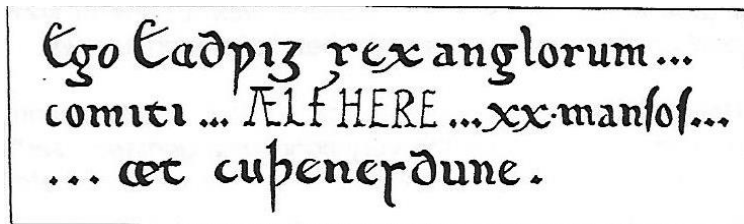 Ego Eadƿig rex anglorum...
comiti ... ÆLFHERE ...xx·manſoſ...
... æt cuþenesdune .